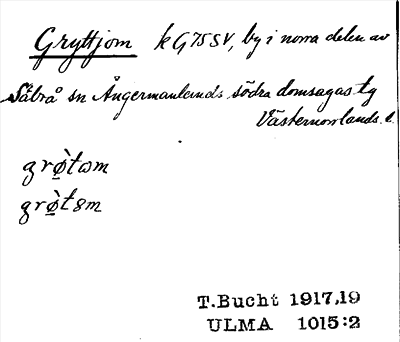 Gryttjom k G75SV, by i norra delen av
Säbrå sn Ångermanlands södra domsagas tg
Västernorrlands l.
grø̀tɷm
grø̀t8m
T.Bucht 1917,19
ULMA 1015:2